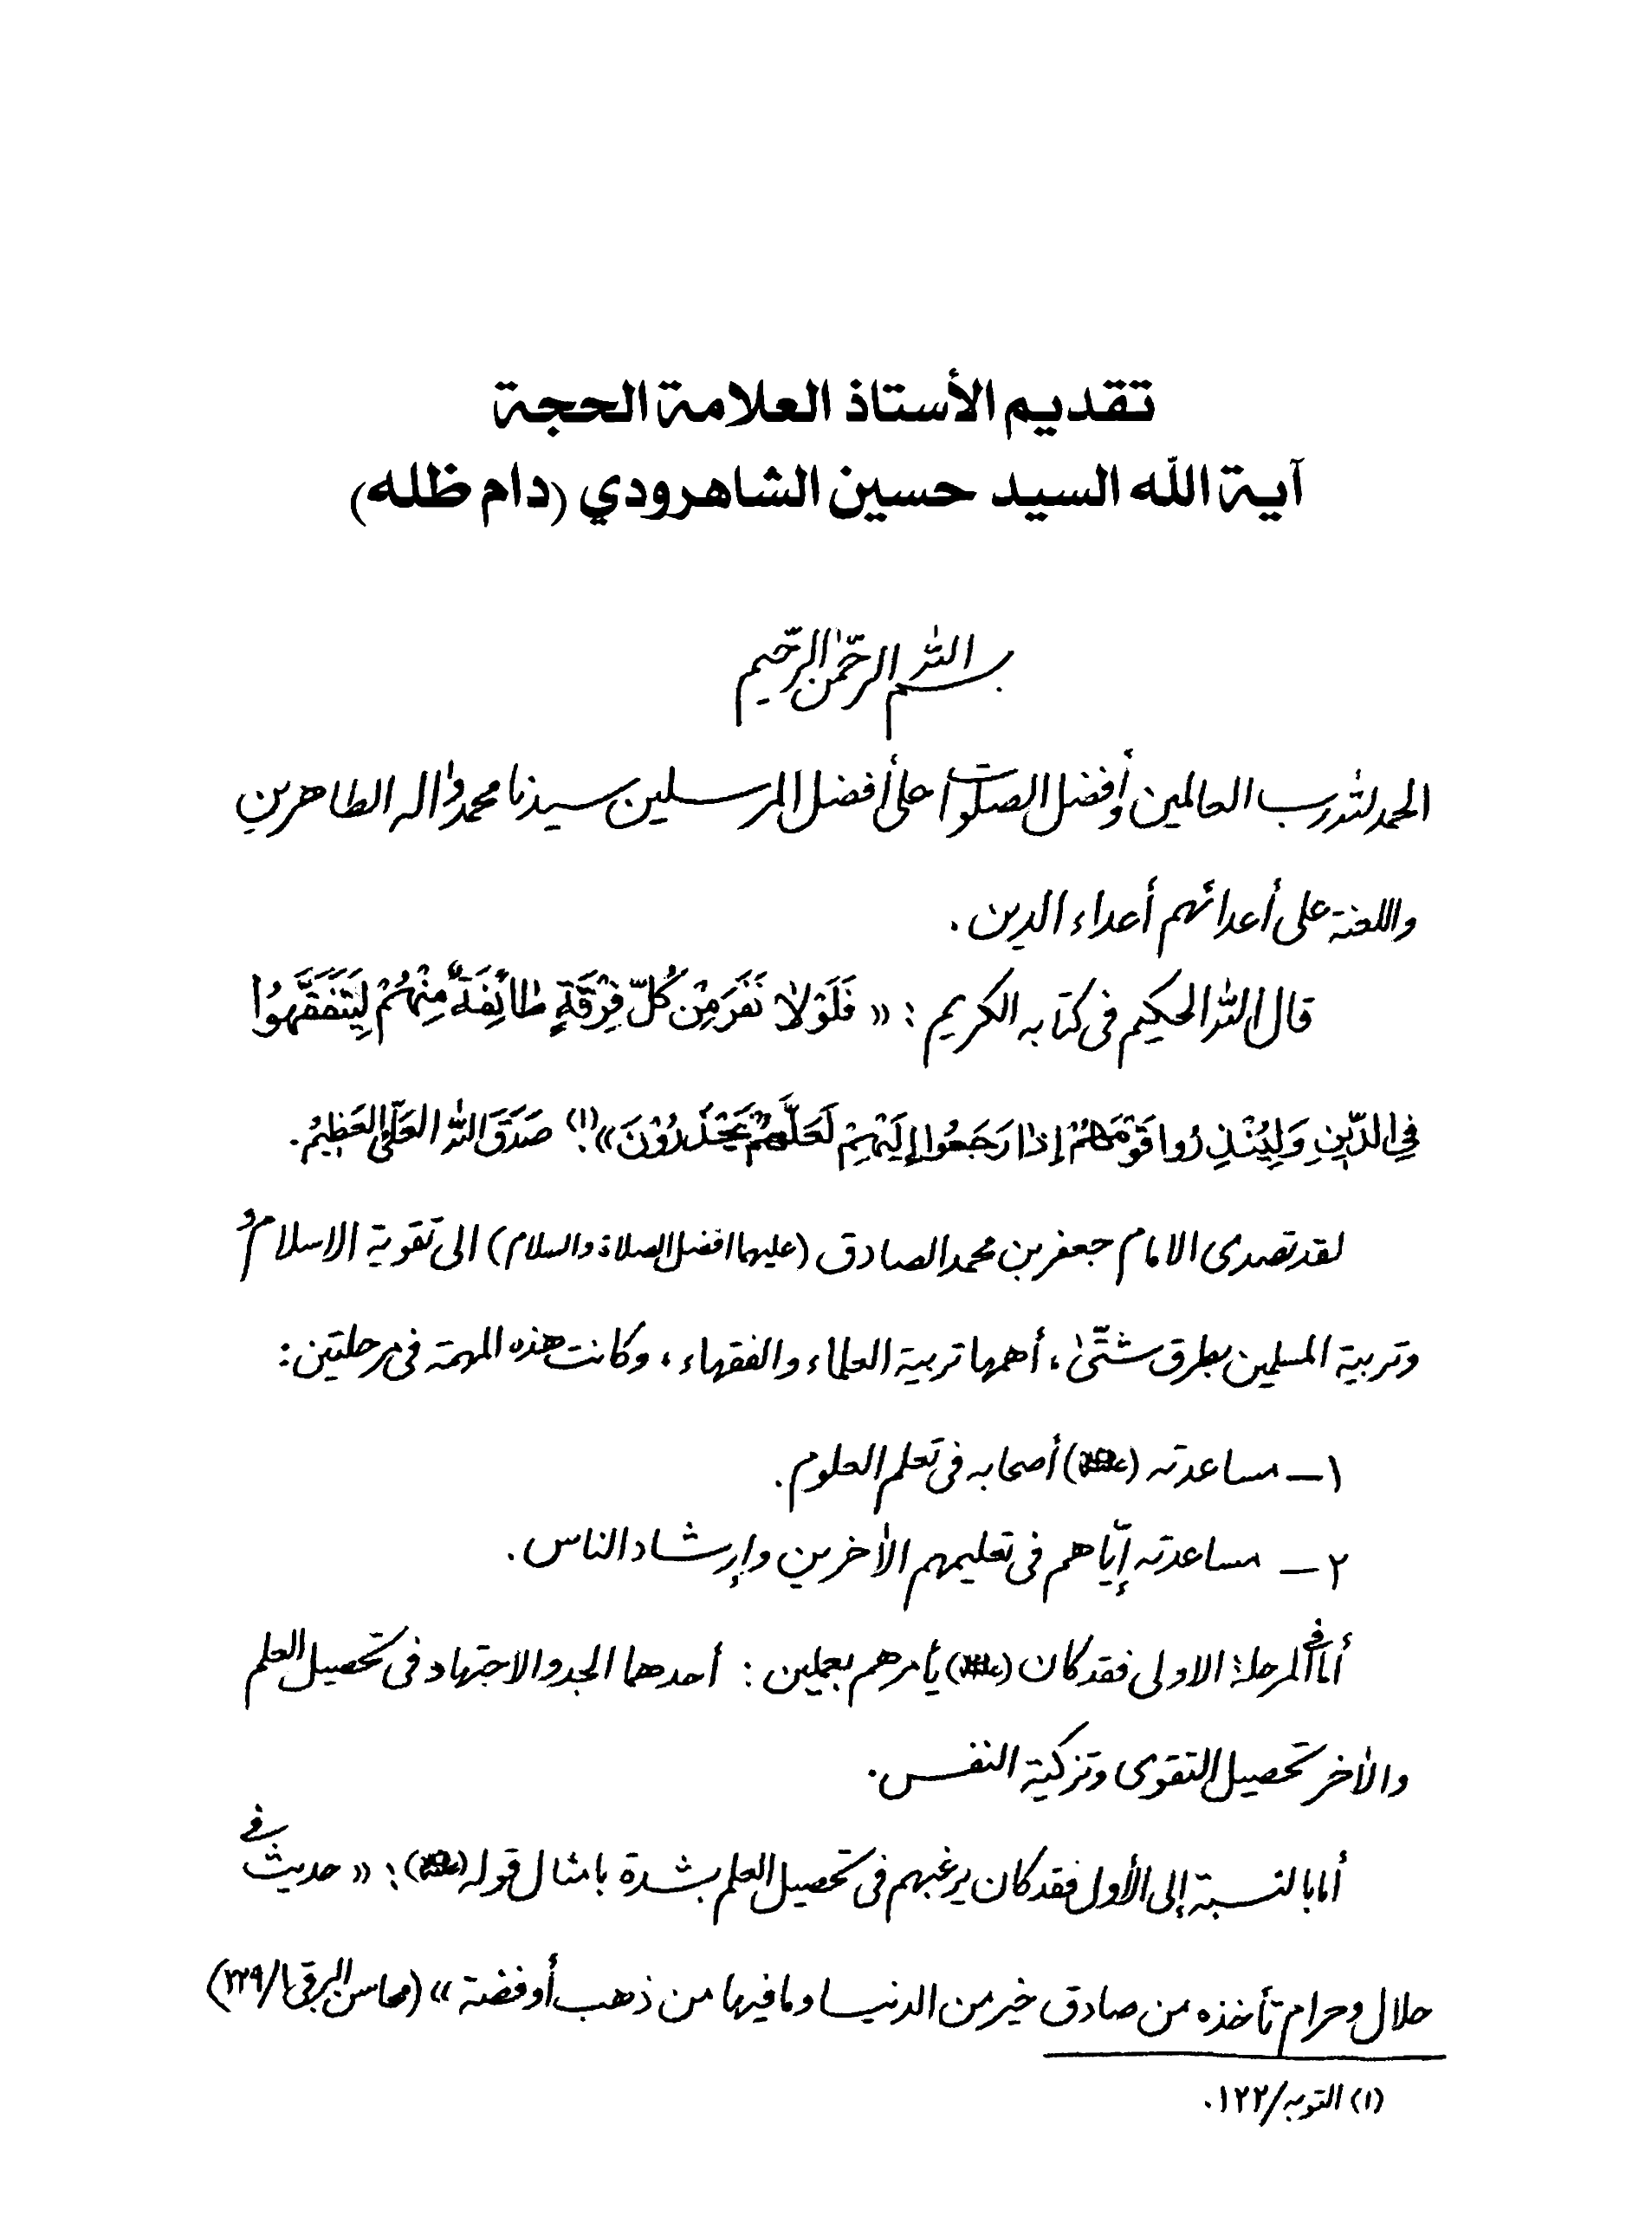 تقديم الأستاذ العلامة الحجة
آية الله السيد حسين الشاهرودي (دام ظله)
بسم الله الرحمن الرحيم
الحمد لله رب العالمين وأفضل الصلوات على أفضل المرسلين سيدنا محمد وآله الطاهرين
واللعنة على أعدائهم أعداء الدين .
قال الله الحكيم في كتابه الكريم : « فَلَوْلا نَفَرَ مِنْ كُلِّ فِرْقَةٍ طائِفَةٌ مِنْهُمْ لِيَتَفَقَّهُوا
فِي الدِّينِ وَلِيُنْذِرُوا قَوْمَهُمْ إِذا رَجَعُوا إِلَيْهِمْ لَعَلَّهُمْ يَحْذَرُوْنَ»(١). صَدَقَ اللهُ العَلِّىُ العَظِيمُ.
لقد تصدى الامام جعفر بن محمد الصادق (عليهما افضل الصلاة والسلام) الى تقوية الاسلام و
وتربية المسلمين بطرق شتّىٰ ، أهمها تربية العلماء والفقهاء ، وكانت هذه المهمة في مرحلتين :
١ – مساعدته (عليه السلام) أصحابه في تعلم العلوم .
٢ – مساعدته إيّاهم في تعليمهم الآخرين وإرشاد الناس .
أما في المرحلة الاولى فقد كان (عليه السلام) يأمرهم بعملين : أحدهما الجد والاجتهاد في تحصيل العلم
والآخر تحصيل التقوى وتزكية النفس .
أما بالنسبة إلى الأول فقد كان يرغبهم في تحصيل العلم بشدة بامثال قوله (عليه السلام) : « حديث في
حلال وحرام تأخذه من صادق خير من الدنيا وما فيها من ذهب أو فضة » (محاسن البرقي ١/٢٢٩)
(١) التوبه/١٢٢.